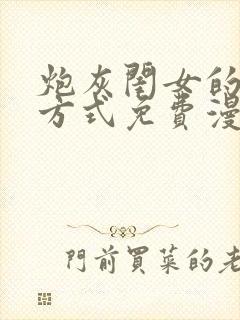 炮灰閨女的
方式免費漫
門前買菜的老